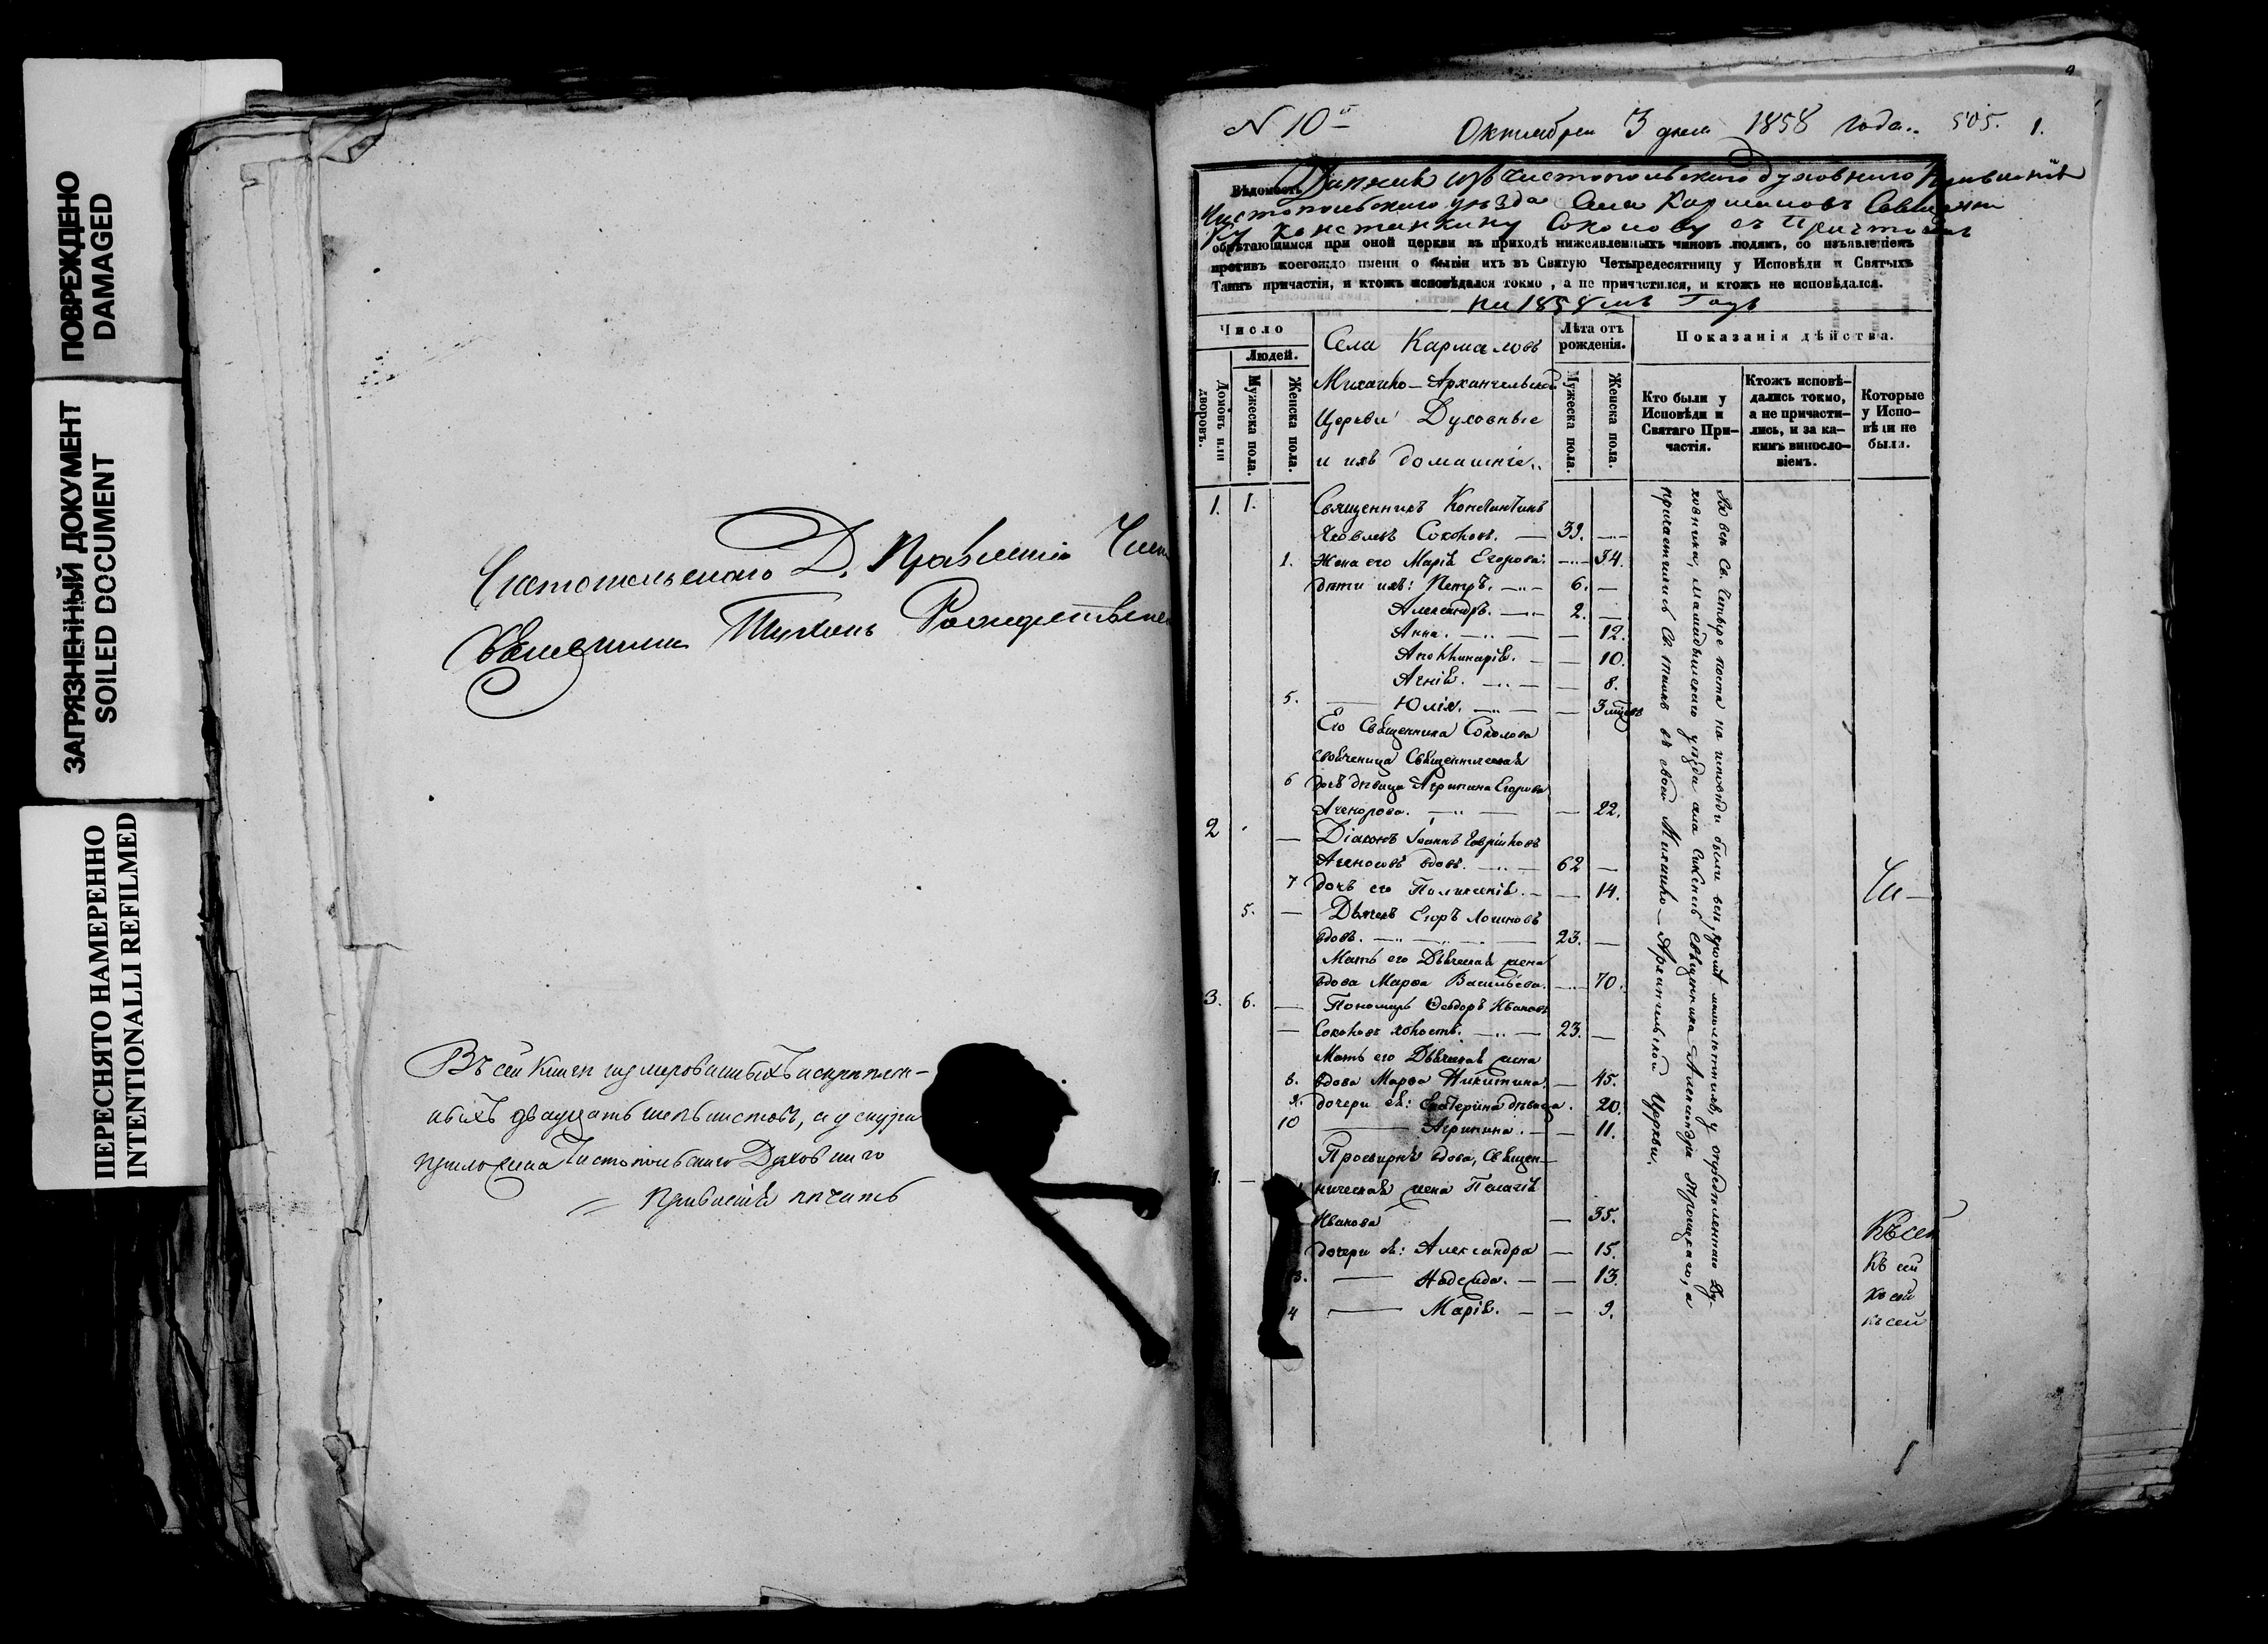 ПОВРЕЖДЕНО
DAMAGED
ЗАГРЯЗНЕННЫЙ ДОКУМЕНТ
SOILED DOCUMENT
ПЕРЕСНЯТО НАМЕРЕННО
INTENTIONALLI REFILMED
Чистопольскаго Д. Правленія
Тихонъ Рождественс
Въ сей книгѣ нумерованныхъ и скрѣплен-
ныхъ двадцать листовъ, и у
приложена Чистопольскаго Духовнаго
Правленія печать
N 10й Октября 3 дня 1858 года. 505. 1.
Вѣдомость Дана изъ Чистопольскаго духовнаго Правленія
Чистопольскаго уѣзда Села Кармаловъ Священни
ку Констанкину Соколову съ Причтомъ
обрѣтающимся при оной церкви въ приходѣ нижеявленныхъ чиновъ людямъ, со изъявленіемъ
противъ коегождо имени о бытіи ихъ въ Святую Четыредесятницу у Исповѣди и Святыхъ
Таинъ причастія, и ктожъ исповѣдался токмо, а не причастился, и ктожъ не исповѣдался.
на 1858 мъ Годъ
Число
Людей.
Домовъ или дворовъ.
Мужеска пола.
Женска пола.
Села Кармаловъ
Михаило-Архангельской
Церкви Духовные
и ихъ домашніе..
Лѣта отъ рожденія.
Мужеска пола.
Женска пола.
Показанія дѣйства.
Кто были у Исповѣди и Святаго При- частія.
Ктожъ исповѣ- дались токмо, а не причасти- лись, и за ка- кимъ виносло- віемъ.
Которые у Испо- вѣди не были.
1. 1. Священникъ Константинъ
Яковлевъ Соколовъ. 39.
1. Жена его Марія Егорова. 34.
дѣти ихъ: Петръ. 6.
Александръ. 2.
Анна. 12.
Аполлинарія. 10.
Агнія. 8.
5. Юлія. 3 мѣсяц
Его Священника Соколова
своячница Священническая
6 дочь дѣвица Агрипина Егорова
22.
2 Діаконъ Іоаннъ Гавріиловъ
вдовъ. 62
7 дочь его Поликсенія. 14.
5. Дьячекъ Егоръ Логиновъ
вдовъ. 23.
Мать его Дьяческая жена
вдова Марфа Васильева. 70.
3. 6. Пономарь Ѳеодоръ Ивановъ
Соколовъ холостъ. 23.
Мать его Дьяческая жена
8. вдова Марфа Никитина. 45.
9. дочери ея: Екатерина дѣвица. 20.
10 Агрипина. 11.
Просвирня вдова, Священ-
ническая жена Пелагія
Иванова 35.
дочери ея: Александра 15.
3. Надежда. 13.
4 Марія. 9.
Во всѣ Св. Четыре поста на исповѣди были всѣ, кромѣ малолѣтнихъ, у опредѣленнаго Ду-
ховника, уѣзда села священника Александра Троицкаго, а
причастились Св. Таинъ въ своей Михаило-Архангельской Церкви.
Къ сей
Къ сей
Къ сей
Къ сей